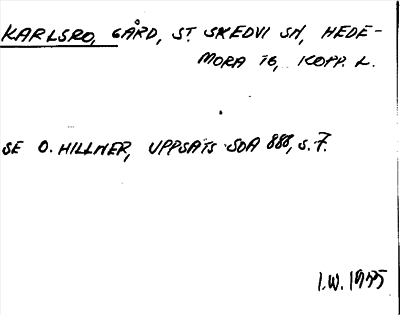 KARLSRO, GÅRD, ST. SKEDVI SN, HEDE-
MORA TG, KOPP. L.
SE O. HILLNER, UPPSATS SOA 888, S. 7.
I.W. 1975